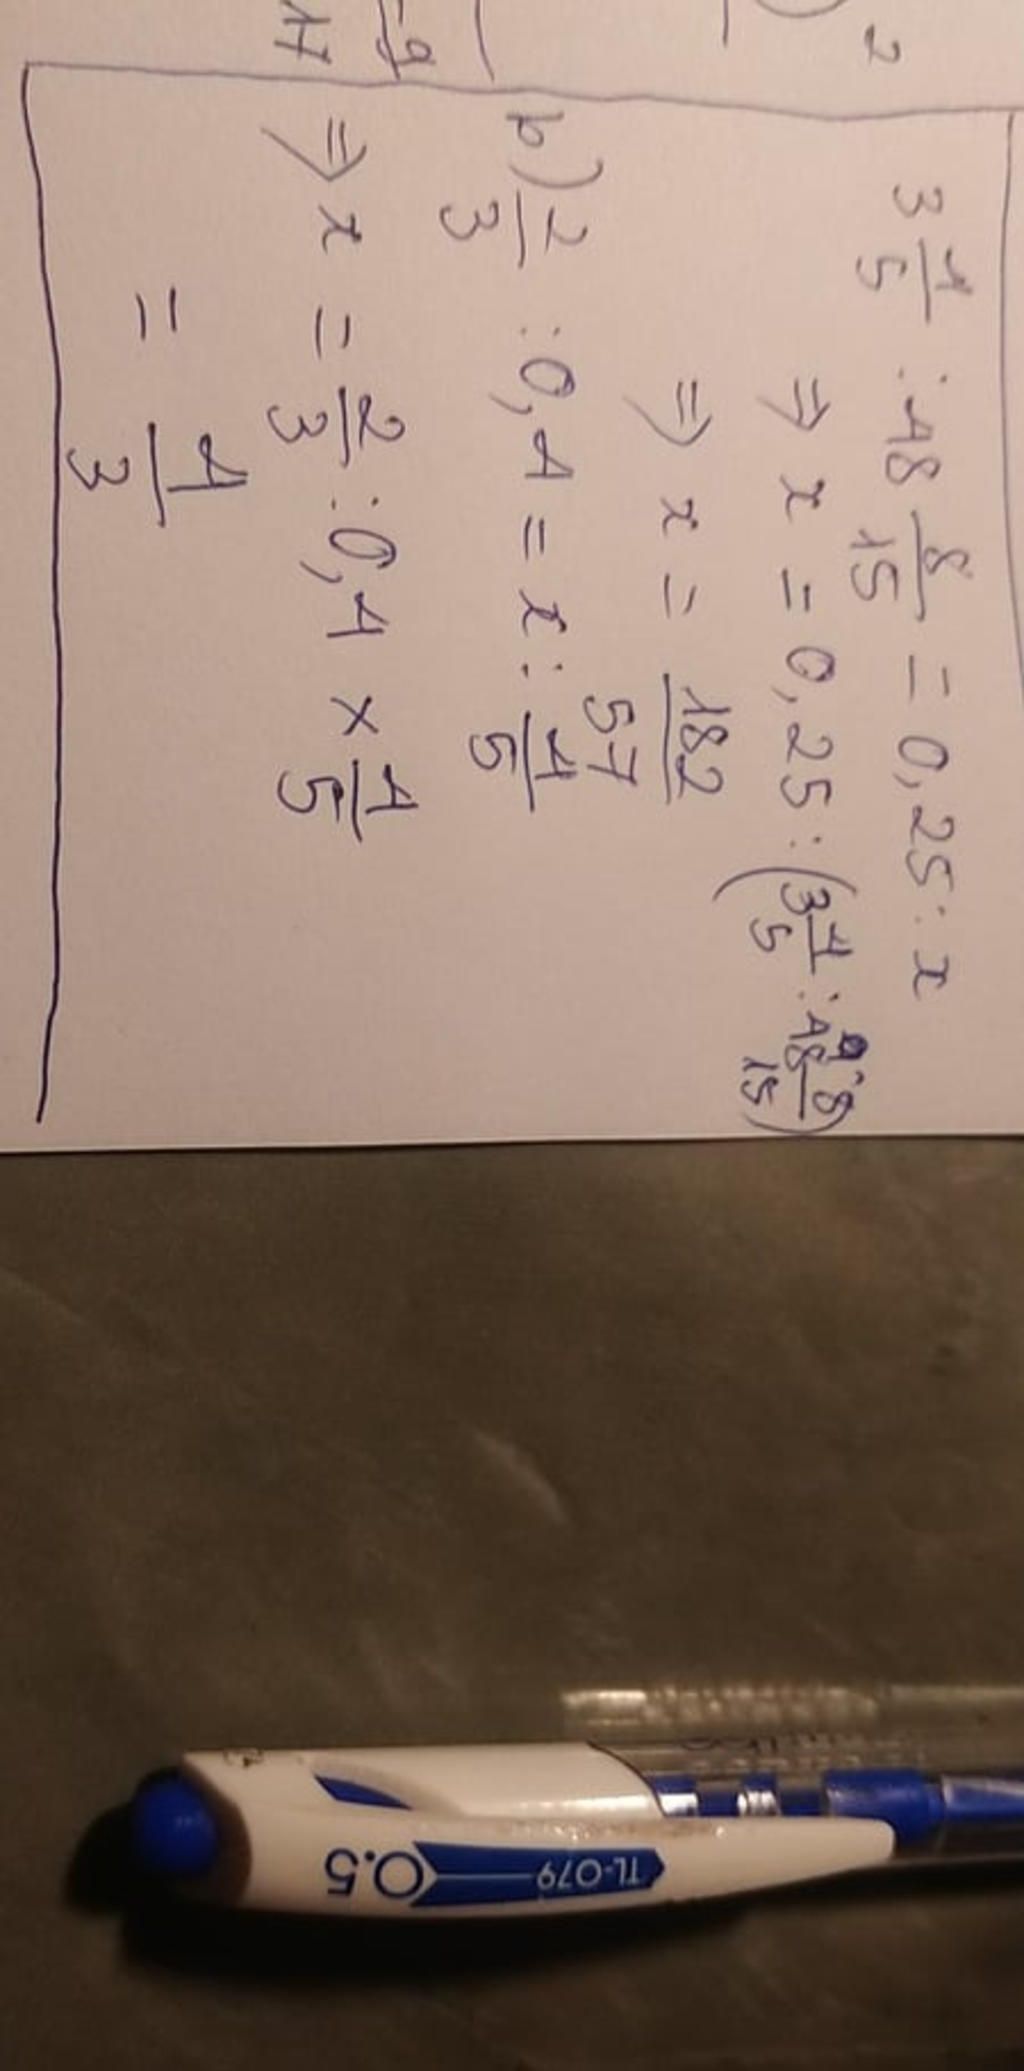 2
3 1/5 : 18 8/15 = 0,25 : x
=> x = 0,25 : (3 1/5 : 18 8/15)
=> x = 182/57
b) 2/3 : 0,1 = x : 1/5
=> x = 2/3 : 0,1 × 1/5
= 4/3
-9
17
TL-079
0.5